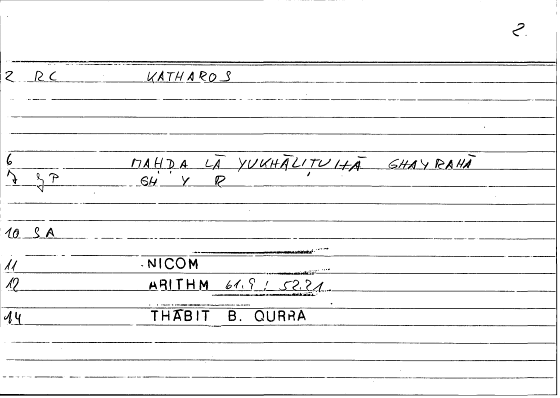 2.
2 RC KATHAROS
6 MAḤḌA LĀ YUKHĀLIṬUHĀ GHAYRAHĀ
7 GP GH Y R
10 SA
11 NICOM
12 ARITHM 61.9 : 52.21
14 THĀBIT B. QURRA